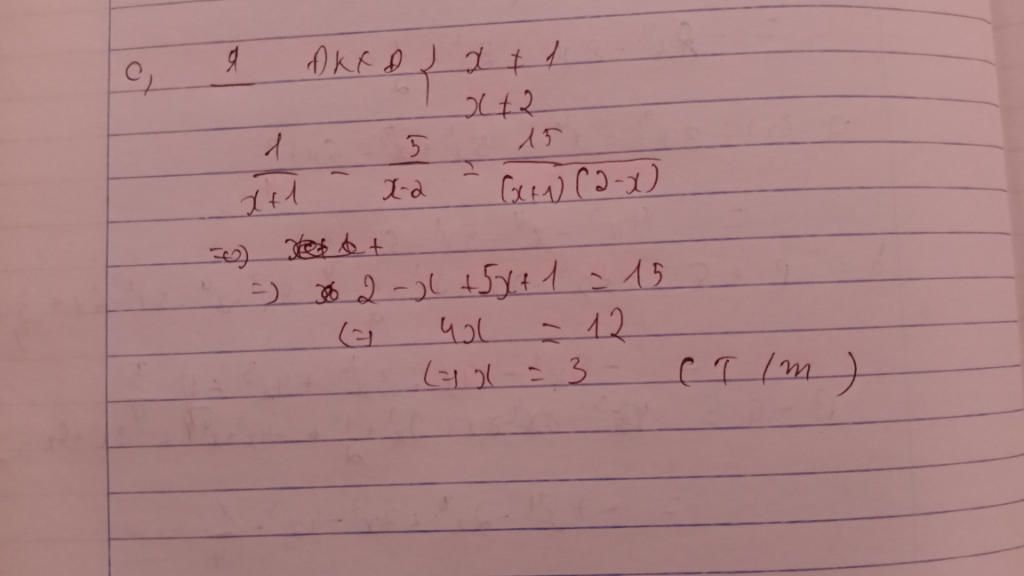 c, ĐKXĐ { x ≠ 1
x ≠ 2
1/(x+1) - 5/(x-2) = 15/((x+1)(2-x))
=> 2 - x + 5x + 1 = 15
<=> 4x = 12
<=> x = 3 (T/m)